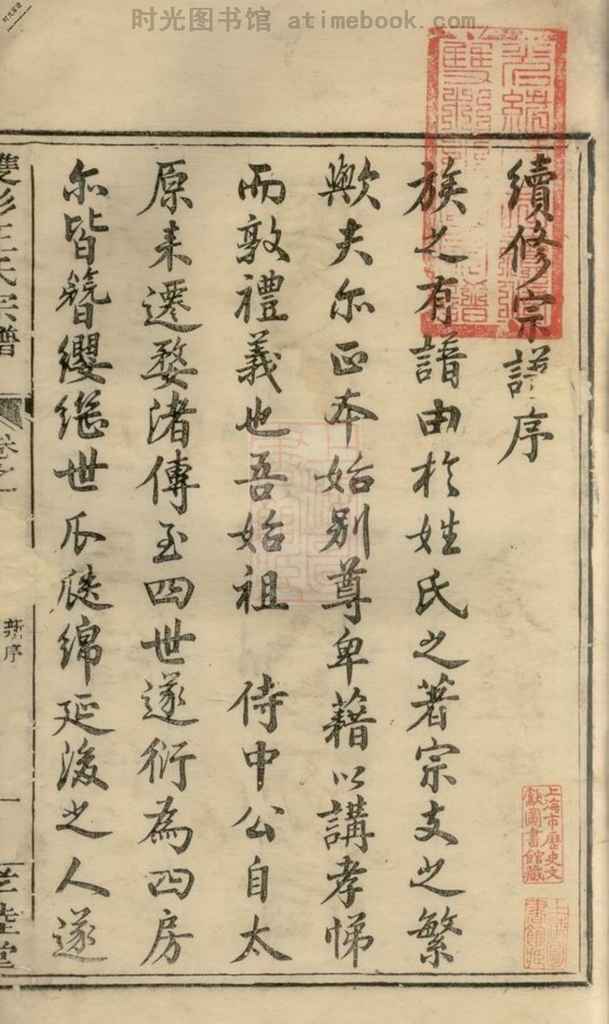 时光图书馆 atimebook.com
續修宗譜序
族之有譜由於姓氏之著宗支之繁
歟夫尒正本始别尊卑藉以講孝悌
而敦禮義也吾始祖 侍中公自太
原来遷婺渚傳至四世遂衍為四房
尒皆簪纓継世瓜瓞綿延後之人遂
雙杉王氏宗譜
卷之一
新序
一
上海市歷史文
獻圖書館藏